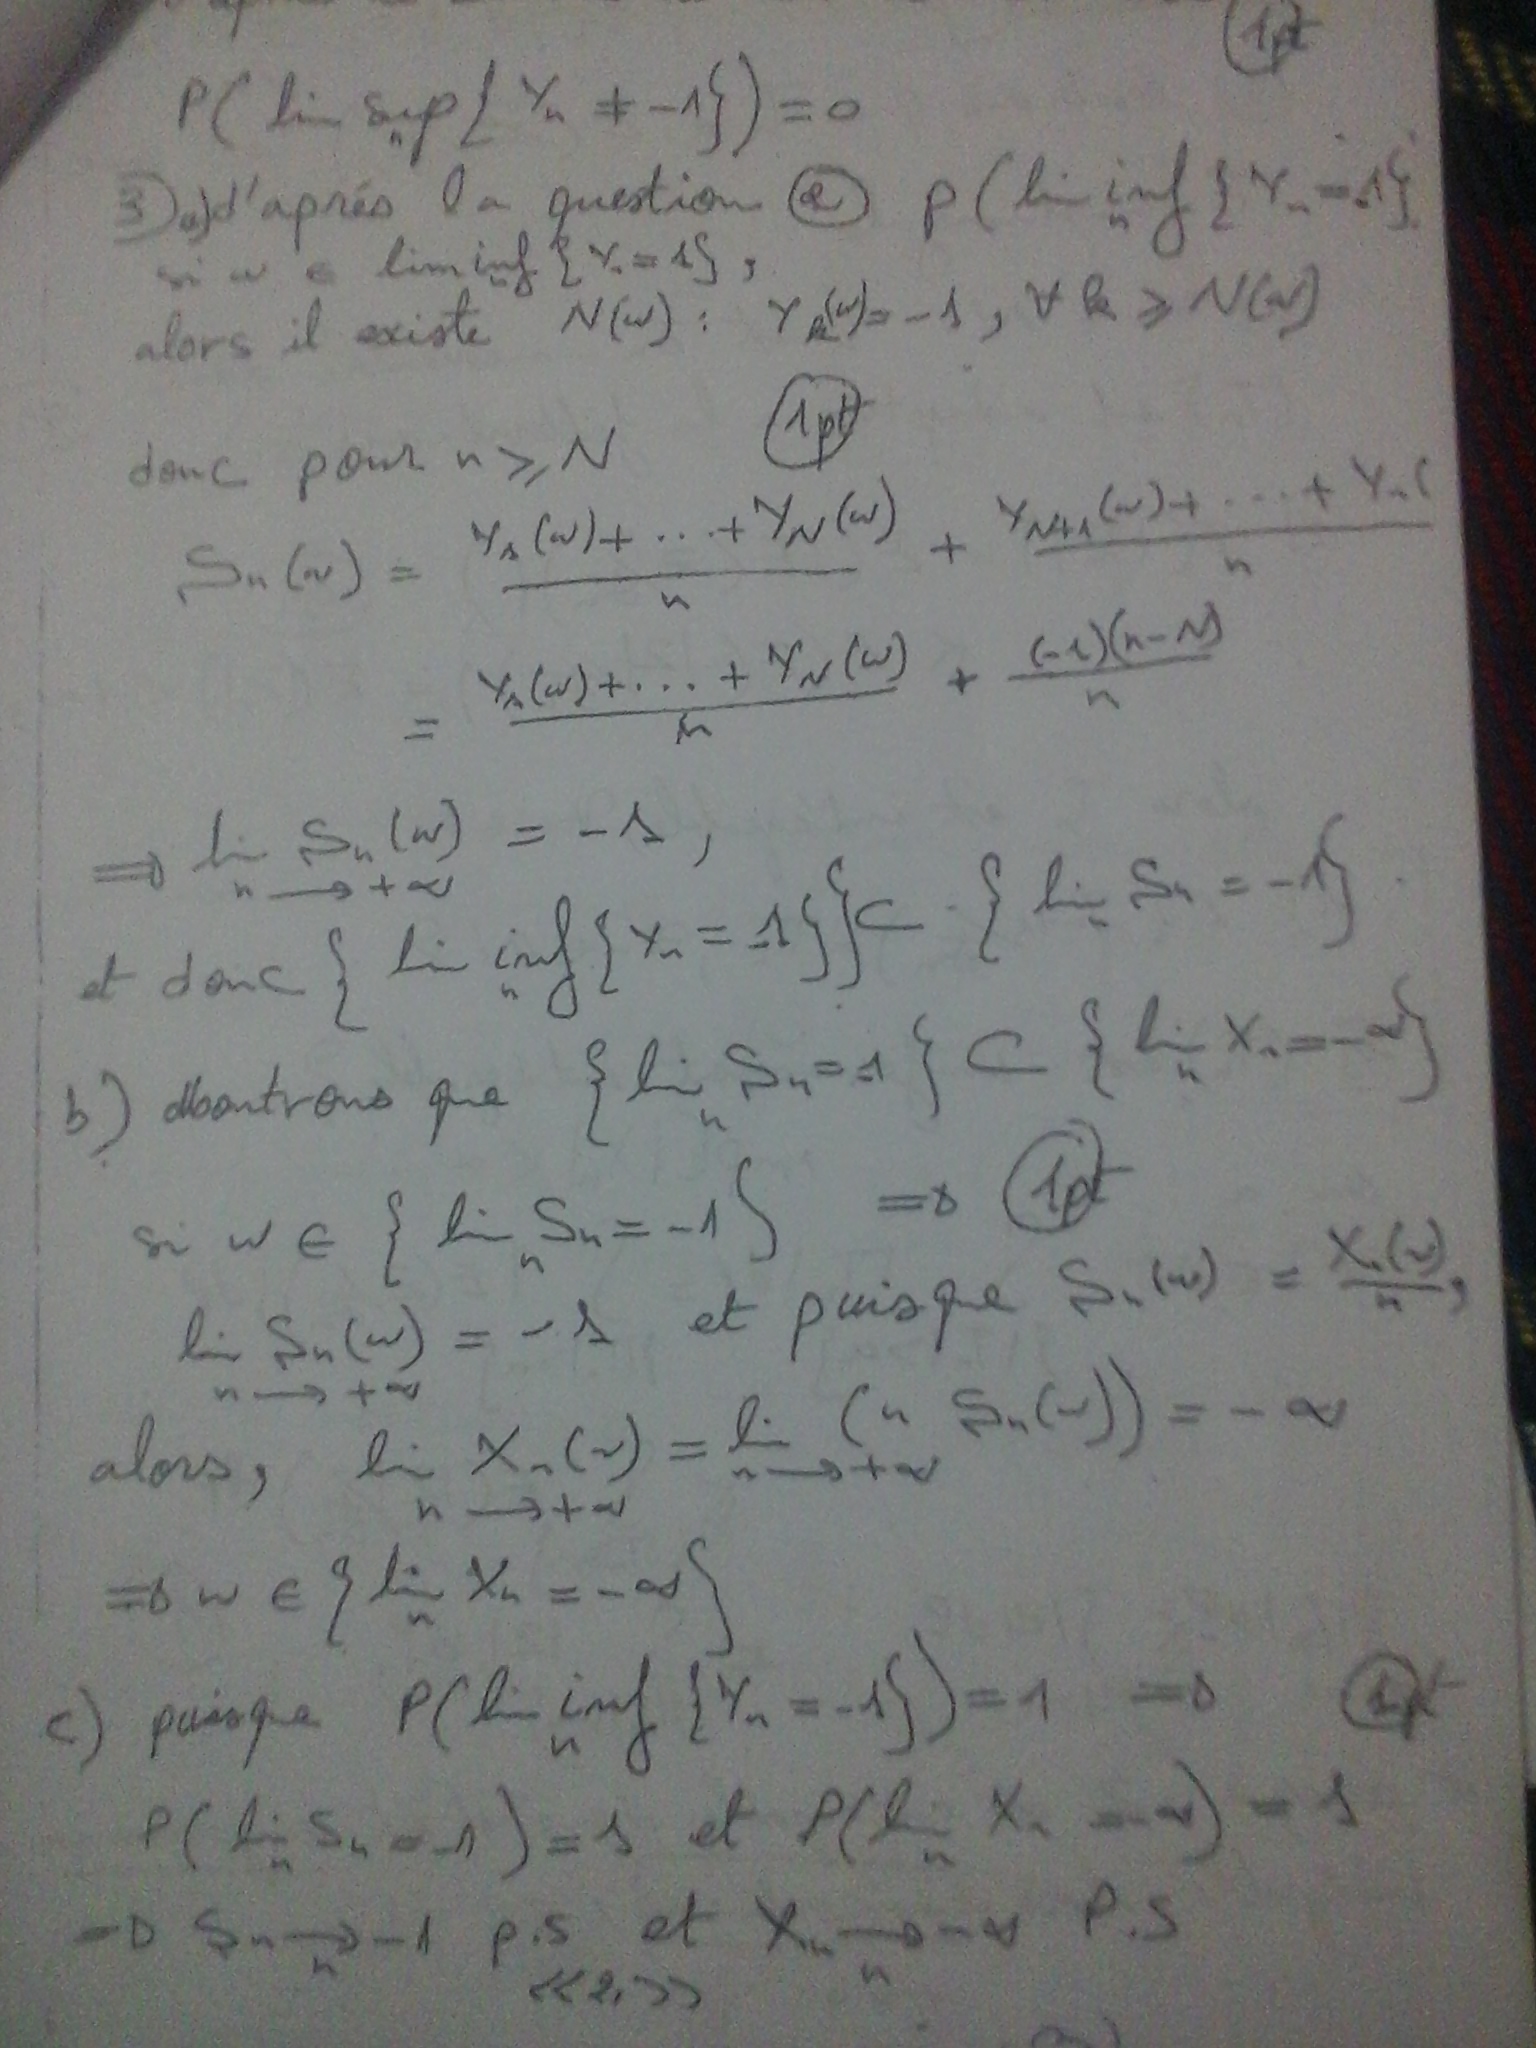 1pt
P( lim sup_n { Y_n ≠ -1 } ) = 0
3) a) d'aprés la question ② P( lim inf_n { Y_n = -1 }
si w ∈ lim inf_n { Y_n = 1 } ,
alors il existe N(w) : Y_k(w) = -1 , ∀ k ⩾ N(w)
1pt
donc pour n ⩾ N
S_n(w) = (Y_1(w) + ... + Y_N(w))/n + (Y_{N+1}(w) + ... + Y_n(/n
= (Y_1(w) + ... + Y_N(w))/n + (-1)(n-N)/n
⇒ lim_{n→+∞} S_n(w) = -1 ,
et donc { lim inf_n { Y_n = -1 } } ⊂ { lim_n S_n = -1 } .
b) Montrons que { lim_n S_n = -1 } ⊂ { lim_n X_n = -∞ }
si w ∈ { lim_n S_n = -1 } ⇒ 1pt
lim_{n→+∞} S_n(w) = -1 et puisque S_n(w) = X_n(w)/n ,
alors, lim_{n→+∞} X_n(w) = lim_{n→+∞} (n S_n(w)) = -∞
⇒ w ∈ { lim_n X_n = -∞ }
c) puisque P( lim inf_n { Y_n = -1 } ) = 1 ⇒ 1pt
P( lim_n S_n = -1 ) = 1 et P( lim_n X_n = -∞ ) = 1
⇒ S_n →_n -1 p.s et X_n →_n -∞ P.S
<< 2. >>